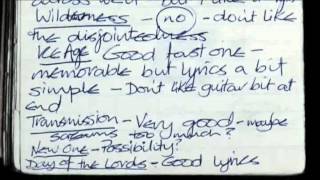 Wilderness - no - don't like
the disjointedness
Ice Age - Good fast one -
memorable but lyrics a bit
simple - Don't like guitar bit at
end
Transmission - Very good - maybe
screams too much?
New One - Possibility?
Day of the Lords - Good lyrics